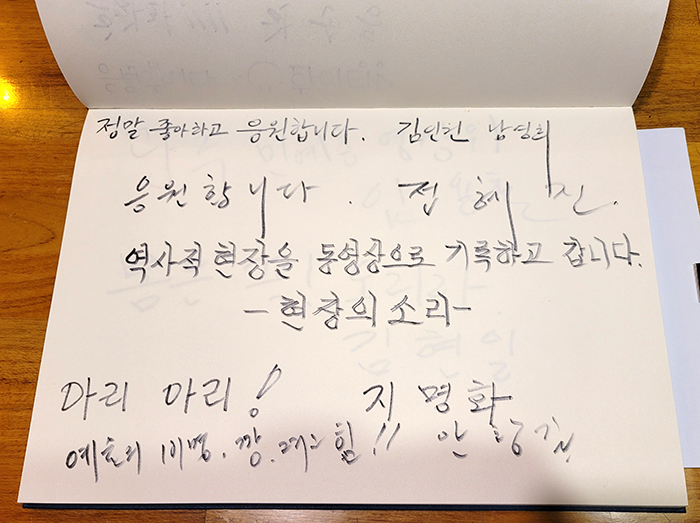 정말 좋아하고 응원합니다. 김인헌 남영희
응원합니다. 접혜진.
역사적 현장을 동영상으로 기록하고 갑니다.
-현장의소리-
아리 아리! 지명화
힘!! 안